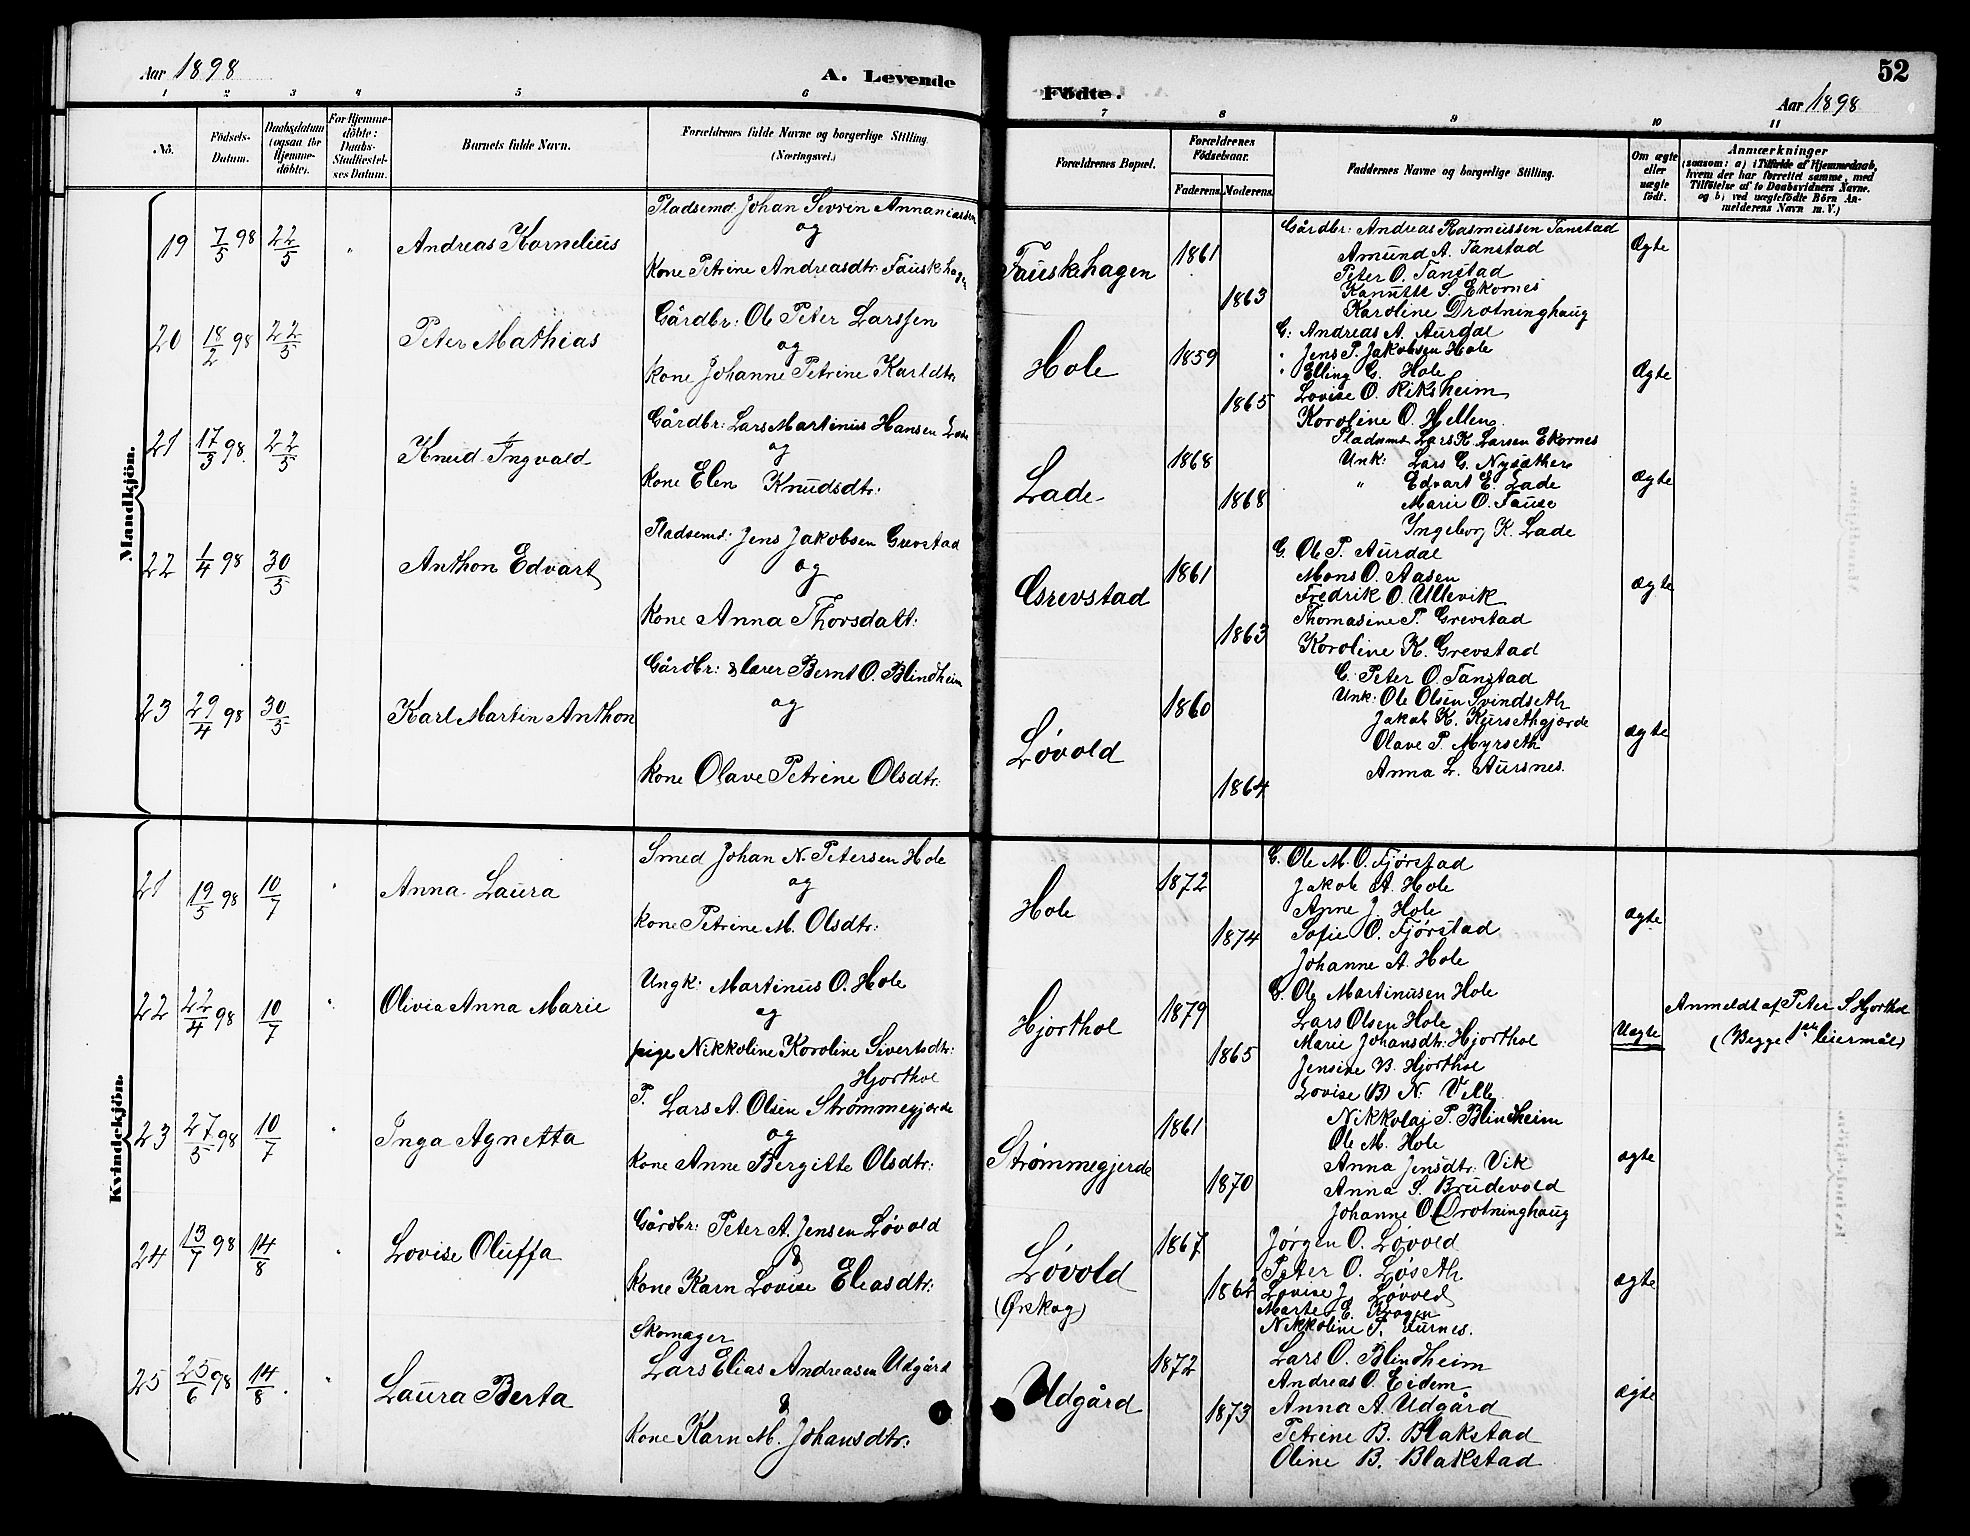 Aar 1898
A. Levende
1 2 3 4 5 6
No.
Fødsels-
Datum.
Daabsdatum
(ogsaa for
Hjemme-
døbte).
For Hjemme-
døbte:
Daabs-
Stadfæstel-
ses Datum.
Barnets fulde Navn.
Forældrenes fulde Navne og borgerlige Stilling
(Næringsvei.)
Mandkjön.
19 7/5 98 22/5 " Andreas Kornelius
Pladsemd. Johan Sevrin Annaniassen
og
Kone Petrine Andreasdtr. Fauskhagen
20 18/2 98 22/5 Peter Mathias
Gårdbr: Ol Peter Larssen
og
kone Johanne Petrine Karldtr.
21 17/3 98. 22/5 Knud Ingvald
Gårdbr: Lars Martinus Hansen Lade
og
kone Elen Knudsdtr:
22 1/4 98 30/5 Anthon Edvart
Pladsemd: Jens Jakobsen Grevstad
og
kone Anna Thorsdatt:
23 29/4 98 30/5 Karl Martin Anthon
Gårdbr: & lærer Bernt O. Blindheim
og
kone Olave Petrine Olsdtr:
Kvindekjön.
21 19/5 98 10/7 " Anna Laura
Smed Johan N. Petersen Hole
og
kone Petrine M. Olsdtr:
22 22/4 98 10/7 " Olivia Anna Marie
Ungk: Martinus O. Hole
og
pige Nikkoline Koroline Sivertsdtr:
Hjorthol
23 27/5 98 10/7 " Inga Agnetta
P. Lars A. Olsen Strømmegjerde
og
kone Anne Bergitte Olsdtr:
24 13/7 98 14/8 " Lovise Oluffa
Gårdbr: Peter A. Jensen Løvold
&
kone Karn Lovise Eliasdtr:
25 25/6 98 14/8. " Laura Berta
Skomager
Lars Elias Andreasen Udgård
&
kone Karn M. Johansdtr:
52
Fødte.
Aar 1898
7 8 9 10 11
Forældrenes Bopæl.
Forældrenes
Fødselsaar.
Faderens. Moderens.
Faddernes Navne og borgerlige Stilling.
Om ægte
eller
uægte
født.
Anmærkninger
(saasom: a) i Tilfælde af Hjemmedaab,
hvem der har forrettet samme, med
Tilføielse af to Daabsvidners Navne.
og b) ved uægtefødte Børn An-
melderens Navn m. V.)
Fauskhagen 1861 1863
Gårdbr: Andreas Rasmussen Tanstad
Amund A. Tanstad
Peter O. Tanstad
Kanutte S. Ekornes
Karoline Drotninghaug
Ægte
Hole 1859 1865
G: Andreas A. Aurdal
" Jens P. Jakobsen Hole
" Elling G. Hole
Lovise O. Riksheim
Koroline O. Hellen.
Ægte
Lade 1868 1868
Pladsemd. Lars K. Larsen Ekornes
Unk: Lars G. Nysæther
" Edvart E. Lade
Marie O. Fause
Ingeborg K. Lade
Ægte
Grevstad 1861 1863
G. Ole P. Aurdal
Mons O. Aasen
Fredrik O. Ullevik
Thomasine P. Grevstad
Koroline K. Grevstad
Ægte
Løvold 1860 1864
G. Peter O. Tanstad
Unk: Ole Olsen Svindseth
Jakob K. Kursethgjærde
Olave P. Myrseth
Anna L. Aursnes.
ægte
Hole 1872 1874
G. Ole M. O. Fjørstad
Jakob A. Hole
Anne J. Hole
Sofie O. Fjørstad
Johanne A. Hole
ægte
Hjorthol 1879 1865
G. Ole Martinusen Hole
Lars Olsen Hole
Marie Johansdtr: Hjorthol
Jensine B. Hjorthol
Lovise (B) N. Velle
Uægte
Anmeldt af Peter S. Hjorthol
(Begge 1ste leiermål)
Strømmegjerde 1861 1870
Nikkolai P. Blindheim
Ole M. Hole
Anna Jensdtr: Vik
Anna S. Brudevold
Johanne O. Drotninghaug
ægte
Løvold
(Ørskog)
1867 1862
Jørgen O. Løvold
Peter O. Løseth
Lovise J. Løvold
Marte E. Krogen
Nikkoline T. Furnes.
ægte
Udgård 1872 1873
Lars O. Blindheim
Andreas O. Eidem
Anna A. Udgård
Petrine B. Blakstad
Oline B. Blakstad
ægte